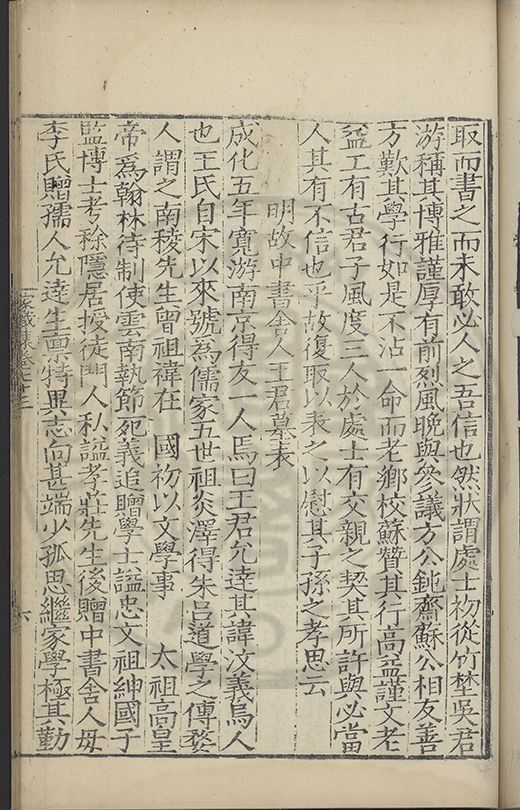 取而書之而未敢必人之吾信也然狀謂處士初從竹埜吳君
游稱其博雅謹厚有前烈風晚與參議方公鈍齋蘇公相友善
方歎其學行如是不沾一命而老鄉校蘇贊其行高益謹文老
益工有古君子風度三人於處士有交親之契其所許與必當
人其有不信也乎故復取以表之以慰其子孫之孝思云
明故中書舍人王君墓表
成化五年寬游南京得友一人焉曰王君允達其諱汶義烏人
也王氏自宋以來號為儒家五世祖炎澤得朱呂道學之傳婺
人謂之南稜先生曾祖禕在 國初以文學事 太祖高皇
帝為翰林待制使雲南執節死義追贈學士謚忠文祖紳國子
監博士考稌隱居授徒門人私謚孝莊先生後贈中書舍人母
李氏贈孺人允達生禀特異志向甚端少孤思繼家學極其勤
家藏集卷七十三
六